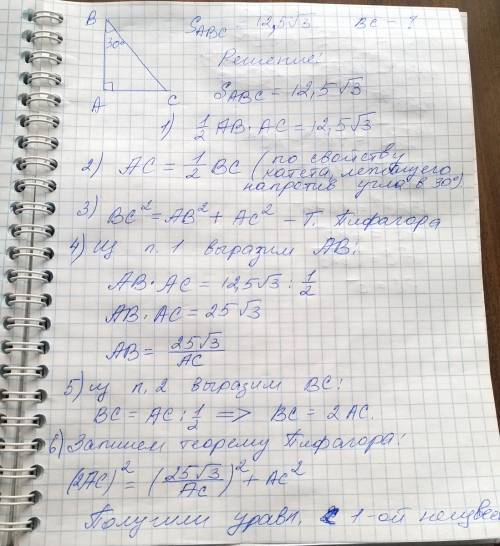 B
30°
A
C
S_ABC = 12,5√3 BC - ?
Решение:
S_ABC = 12,5√3
1) 1/2 AB · AC = 12,5√3
2) AC = 1/2 BC (по свойству
катета, лежащего
напротив угла в 30°)
3) BC² = AB² + AC² - Т. Пифагора
4) Из п. 1 выразим AB:
AB · AC = 12,5√3 : 1/2
AB · AC = 25√3
AB = 25√3/AC
5) из п. 2 выразим BC:
BC = AC : 1/2 => BC = 2AC.
6) Запишем теорему Пифагора:
(2AC)² = (25√3/AC)² + AC²
Получили уравн. с 1-ой